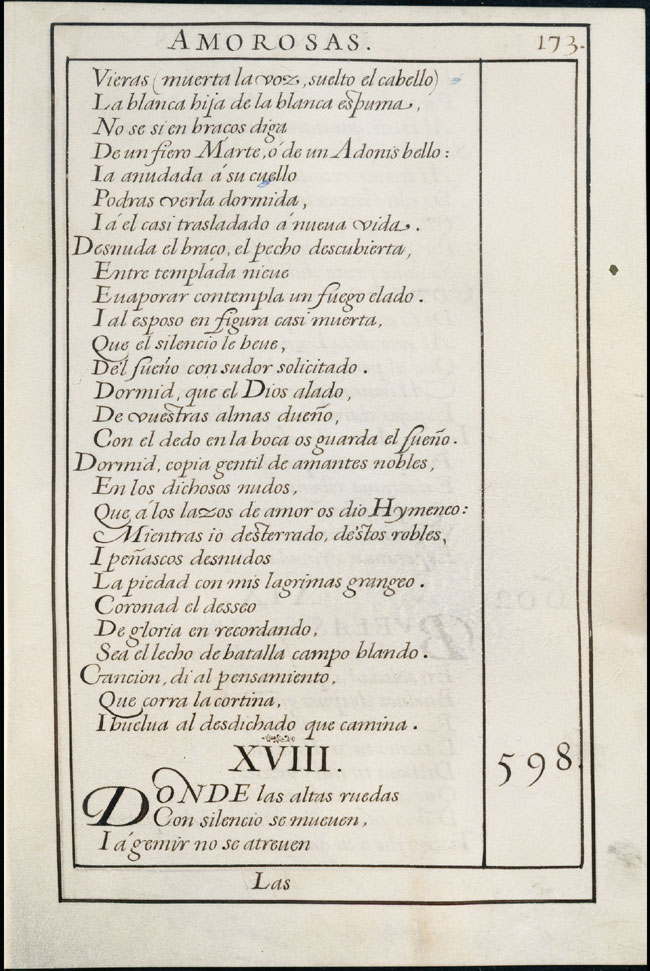 AMOROSAS.
173.
Vieras (muerta la voz, suelto el cabello)
La blanca hija de la blanca espuma,
No se si en braços diga
De un fiero Marte, o de un Adonis bello:
Ia anudada á su cuello
Podras verla dormida,
I á él casi trasladado á nueua vida.
Desnuda el braço, el pecho descubierta,
Entre templada nieue
Euaporar contempla un fuego elado.
I al esposo en figura casi muerta,
Que el silencio le beue,
Del sueño con sudor solicitado.
Dormid, que el Dios alado,
De vuestras almas dueño,
Con el dedo en la boca os guarda el sueño.
Dormid, copia gentil de amantes nobles,
En los dichosos nudos,
Que á los lazos de amor os dio Hymeneo:
Mientras io desterrado, destos robles,
I peñascos desnudos
La piedad con mis lagrimas grangeo.
Coronad el desseo
De gloria en recordando,
Sea el lecho de batalla campo blando.
Cancion, di al pensamiento,
Que corra la cortina,
I buelua al desdichado que camina.
XVIII.
598.
DONDE las altas ruedas
Con silencio se mueuen,
I á gemir no se atreuen
Las